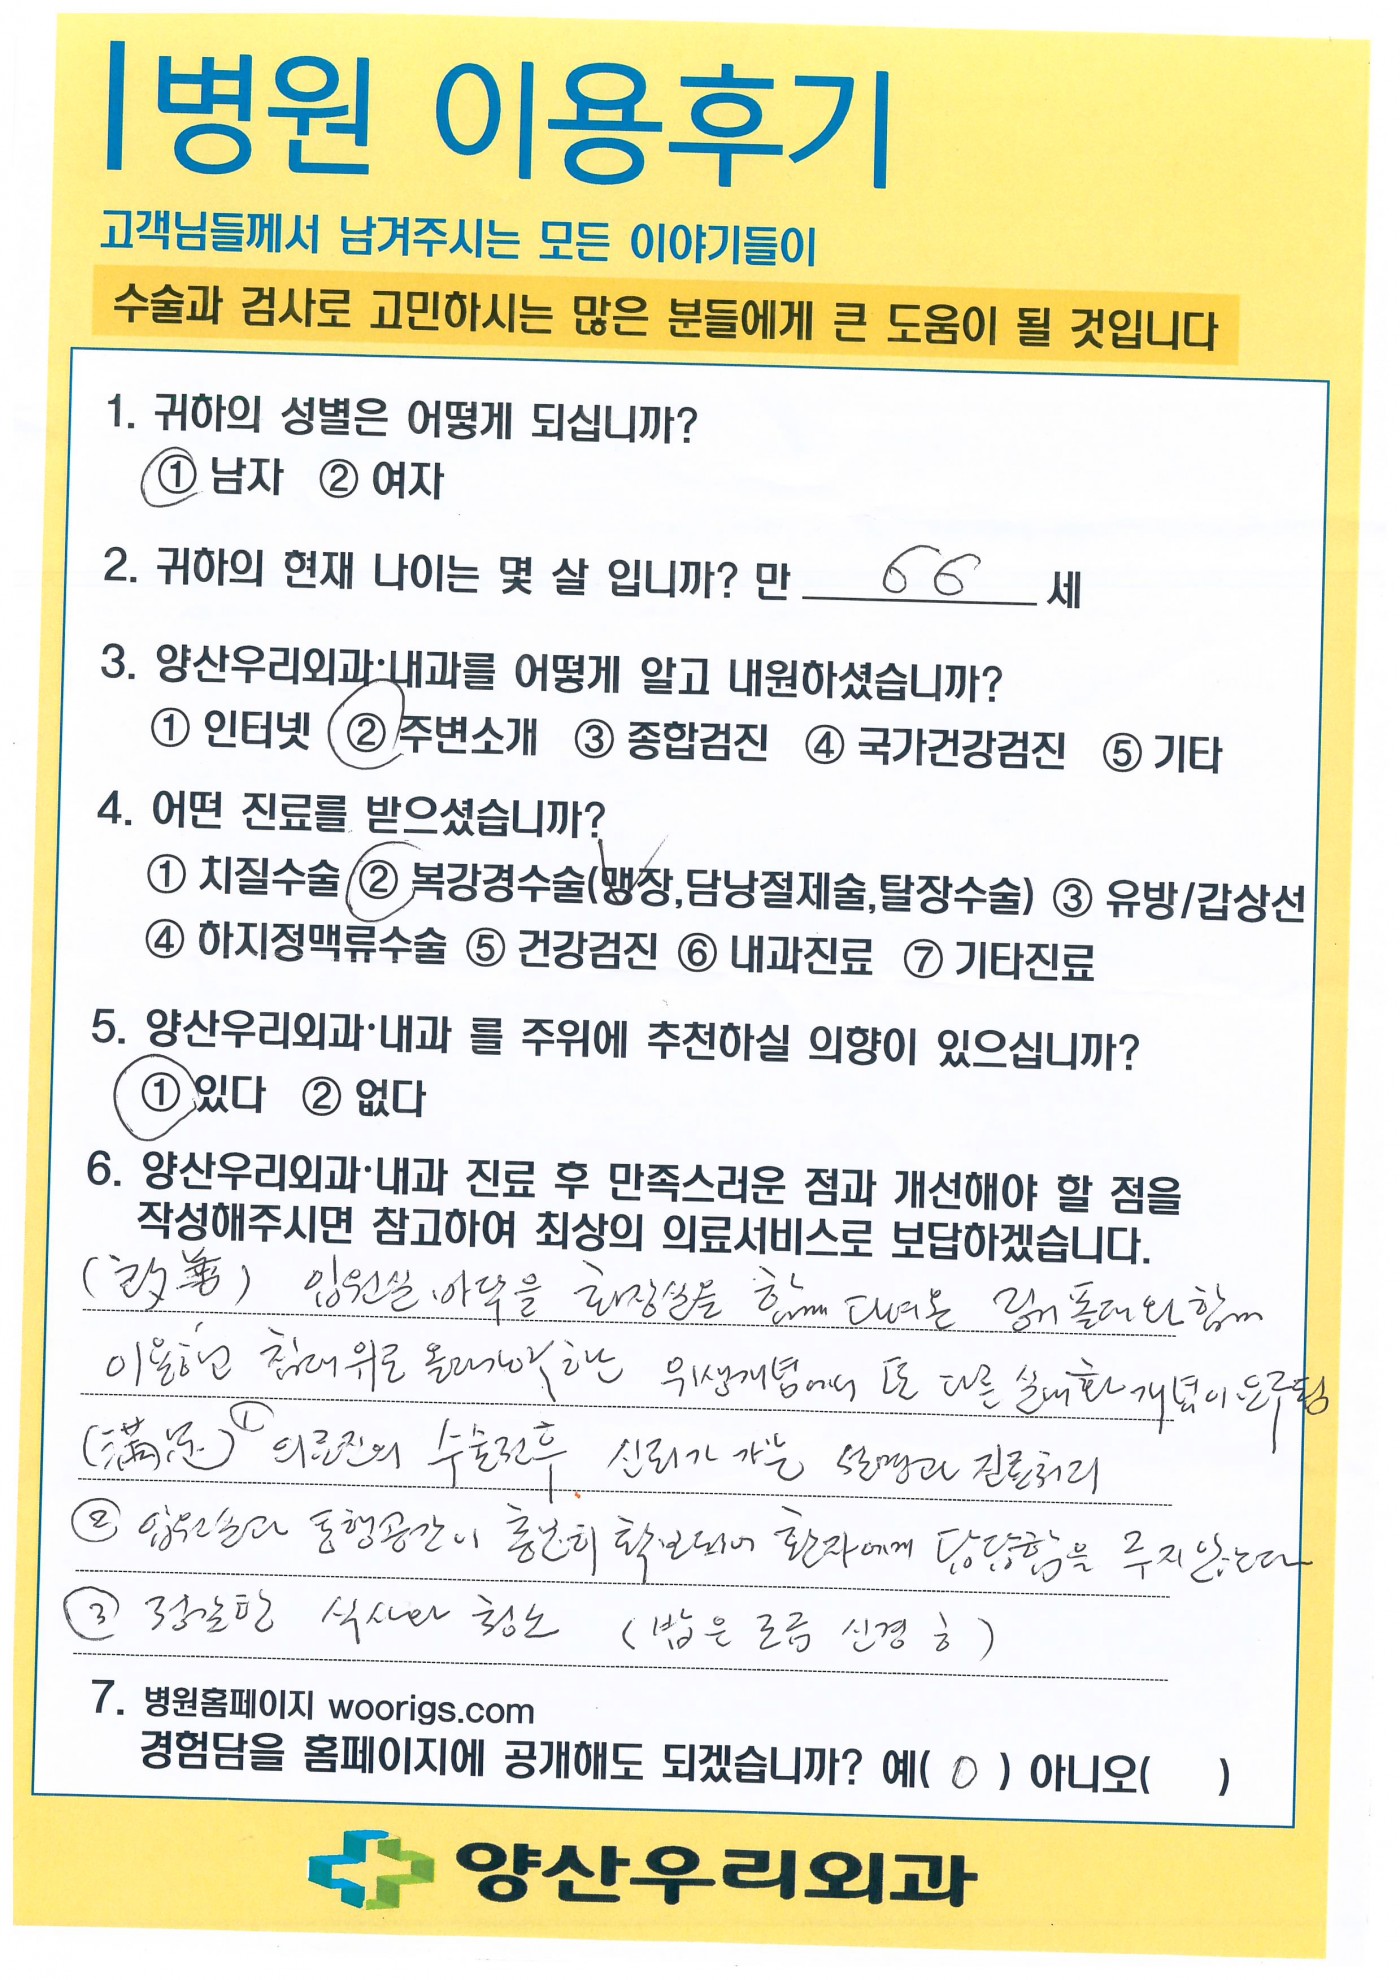 병원 이용후기
고객님들께서 남겨주시는 모든 이야기들이
수술과 검사로 고민하시는 많은 분들에게 큰 도움이 될 것입니다
1. 귀하의 성별은 어떻게 되십니까?
① 남자 ② 여자
2. 귀하의 현재 나이는 몇 살 입니까? 만 66 세
3. 양산우리외과·내과를 어떻게 알고 내원하셨습니까?
① 인터넷 ② 주변소개 ③ 종합검진 ④ 국가건강검진 ⑤ 기타
4. 어떤 진료를 받으셨습니까?
① 치질수술 ② 복강경수술(맹장,담낭절제술,탈장수술) ③ 유방/갑상선
④ 하지정맥류수술 ⑤ 건강검진 ⑥ 내과진료 ⑦ 기타진료
5. 양산우리외과·내과 를 주위에 추천하실 의향이 있으십니까?
① 있다 ② 없다
6. 양산우리외과·내과 진료 후 만족스러운 점과 개선해야 할 점을
작성해주시면 참고하여 최상의 의료서비스로 보답하겠습니다.
(改善) 입원실 바닥을 화장실을 함께 다녀온 링거 폴대와 함께
침대 위로 올라가 위생개념에서 또 다른 실내화 개념이
(滿足) ① 의료진의 수술전후 신뢰가 가는 설명과 진료처리
② 입원실과 통행공간이 충분히 확보되어 환자에게 답답함을 주지 않는다
③ 정갈한 식사와 청소 (밥은 조금 신경 )
7. 병원홈페이지 woorigs.com
경험담을 홈페이지에 공개해도 되겠습니까? 예( O ) 아니오( )
양산우리외과